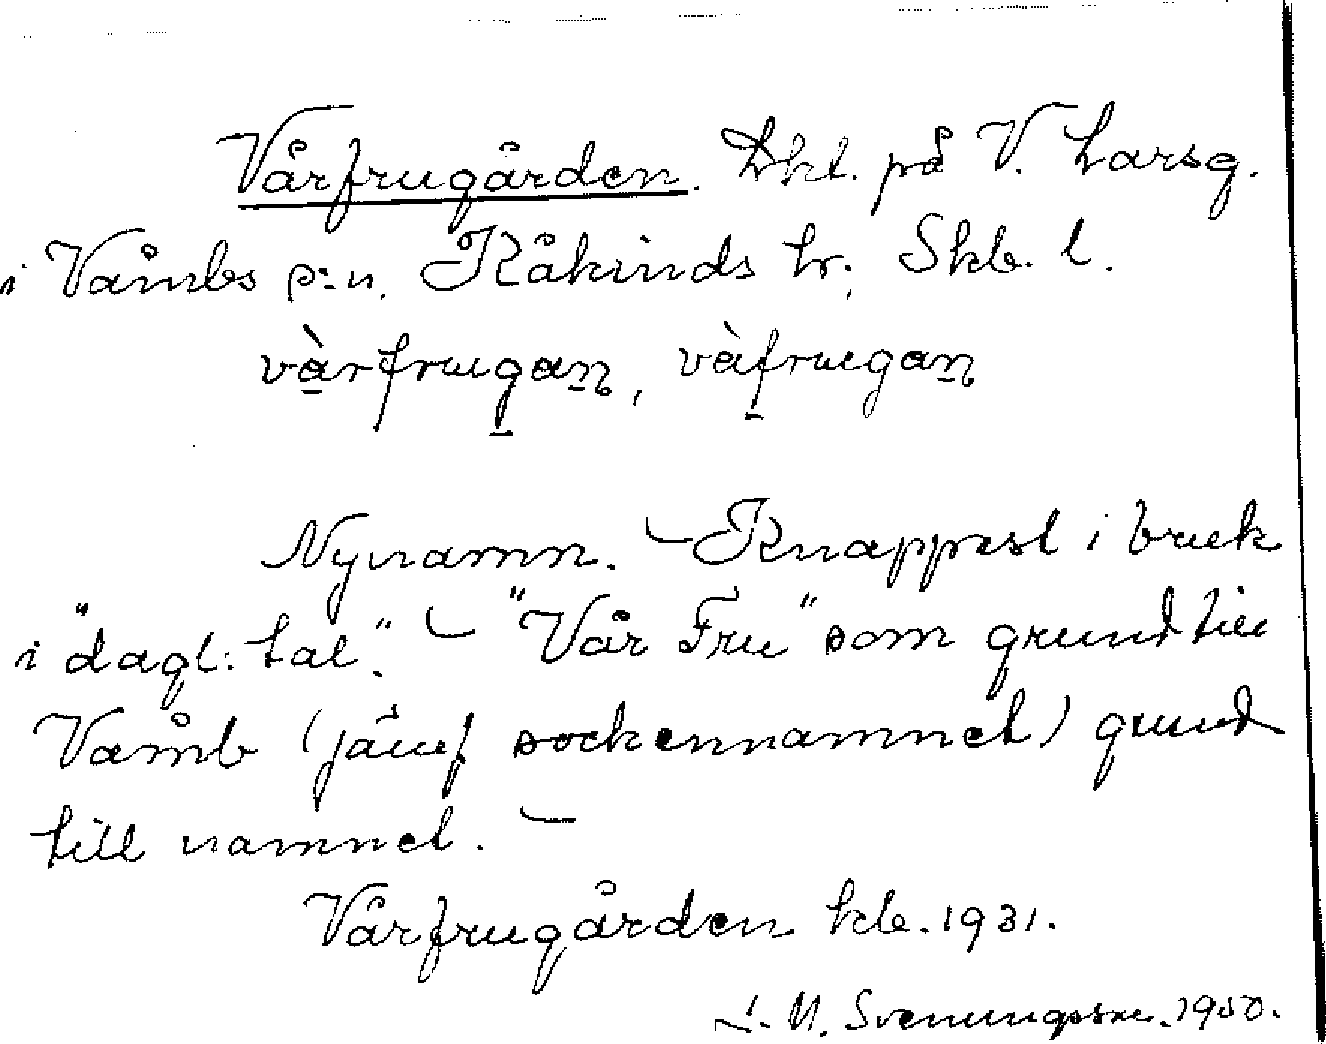 Vårfrugården. Lht. på V. Larsg.
i Våmbs s:n, Kåkinds hr; Skb. l.
vàrfrugan, vàfrugan
Nynamn. – Knappast i bruk
i "dagl. tal". – "Vår Fru" som grund till
Våmb (jämf sockennamnet) grund
till namnet. –
Vårfrugården kb. 1931.
J. M. Svenungsson. 1950.